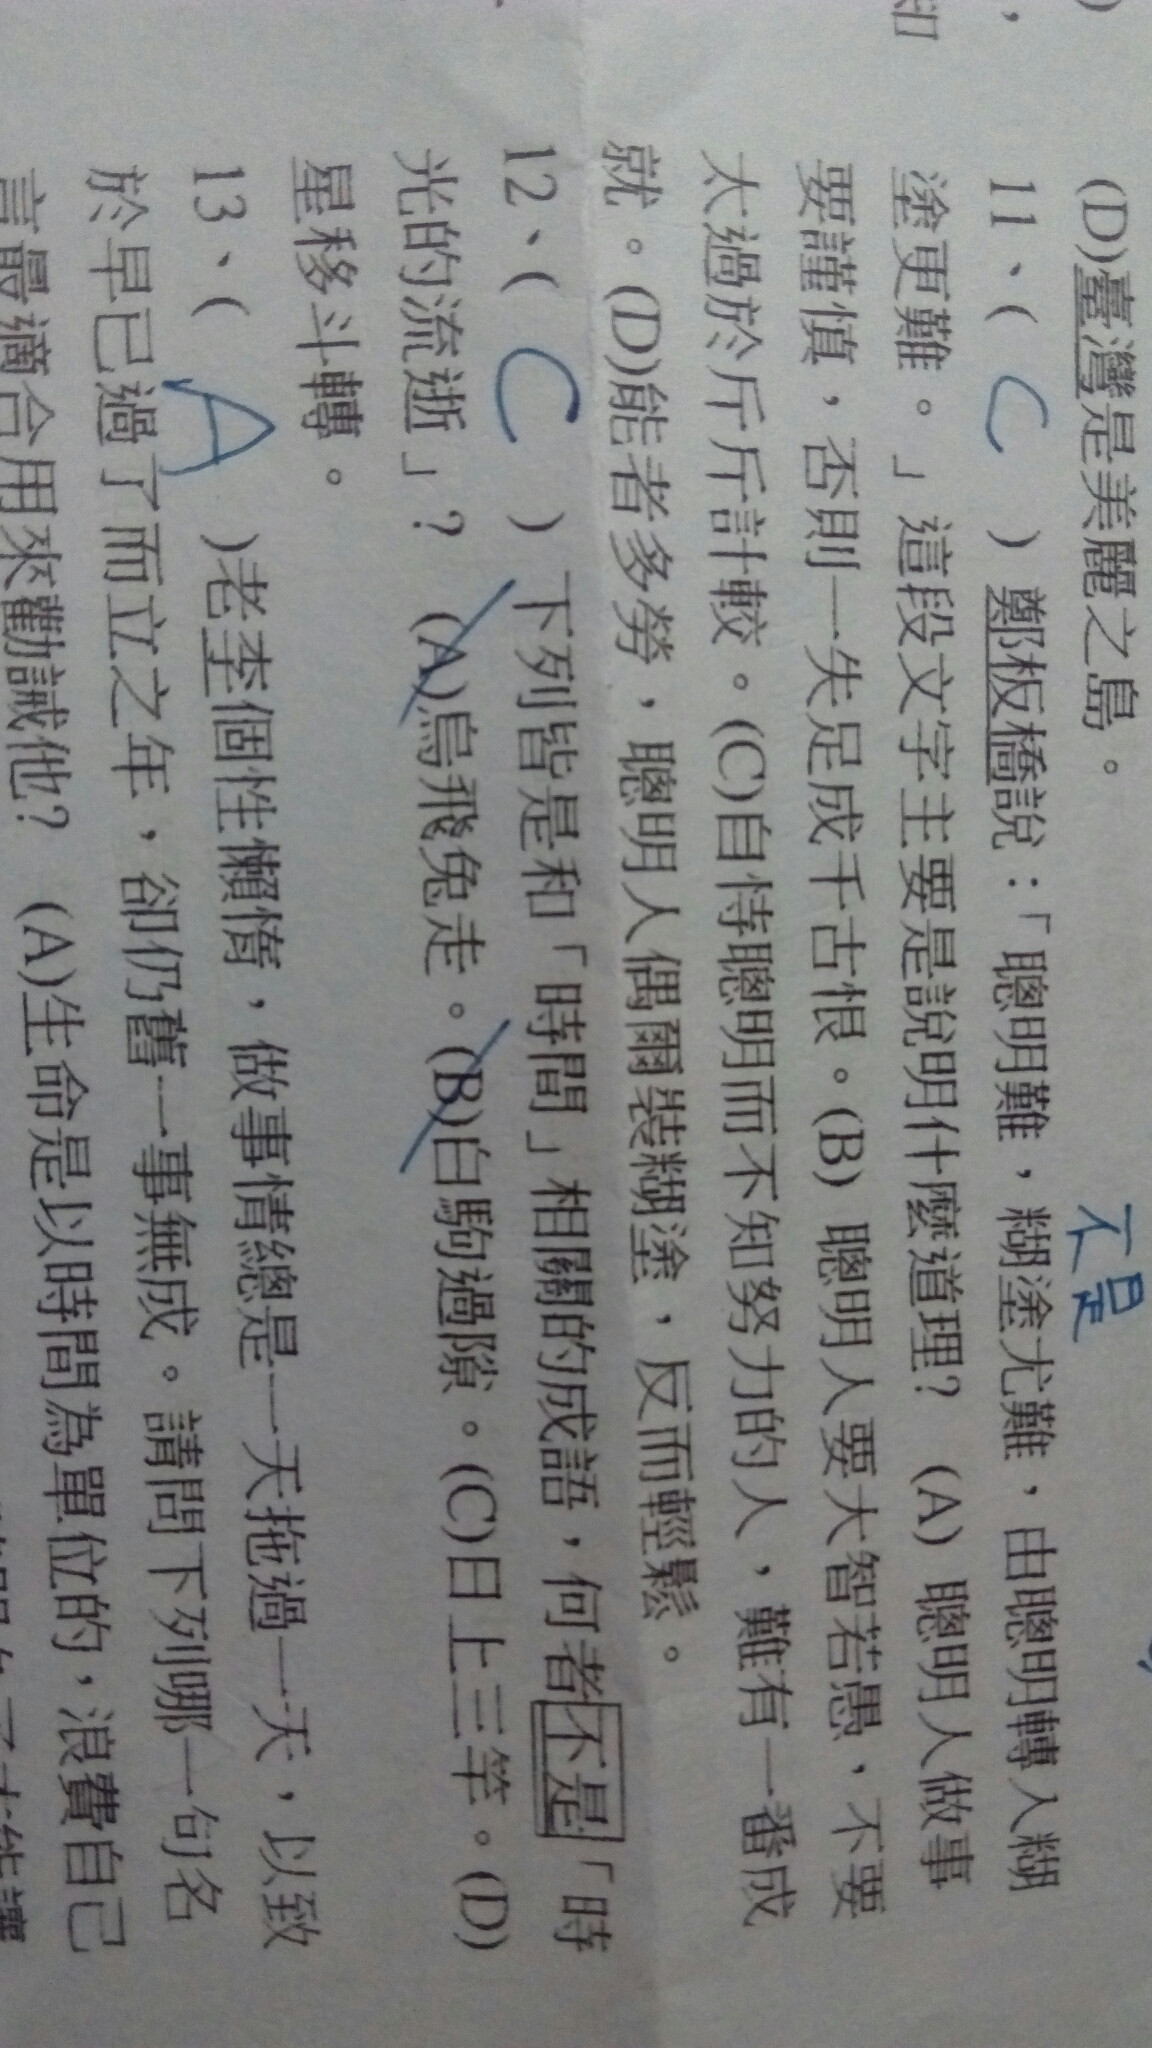 (D)臺灣是美麗之島。
不是
11、( C ) 鄭板橋說：「聰明難，糊塗尤難，由聰明轉入糊
塗更難。」這段文字主要是說明什麼道理？ (A) 聰明人做事
要謹慎，否則一失足成千古恨。(B) 聰明人要大智若愚，不要
太過於斤斤計較。(C)自恃聰明而不知努力的人，難有一番成
就。(D)能者多勞，聰明人偶爾裝糊塗，反而輕鬆。
12、( C ) 下列皆是和「時間」相關的成語，何者不是「時
光的流逝」？ (A)烏飛兔走。(B)白駒過隙。(C)日上三竿。(D)
星移斗轉。
13、( A )老李個性懶惰，做事情總是一天拖過一天，以致
於早已過了而立之年，卻仍舊一事無成。請問下列哪一句名
言最適合用來勸誡他？ (A)生命是以時間為單位的，浪費自己